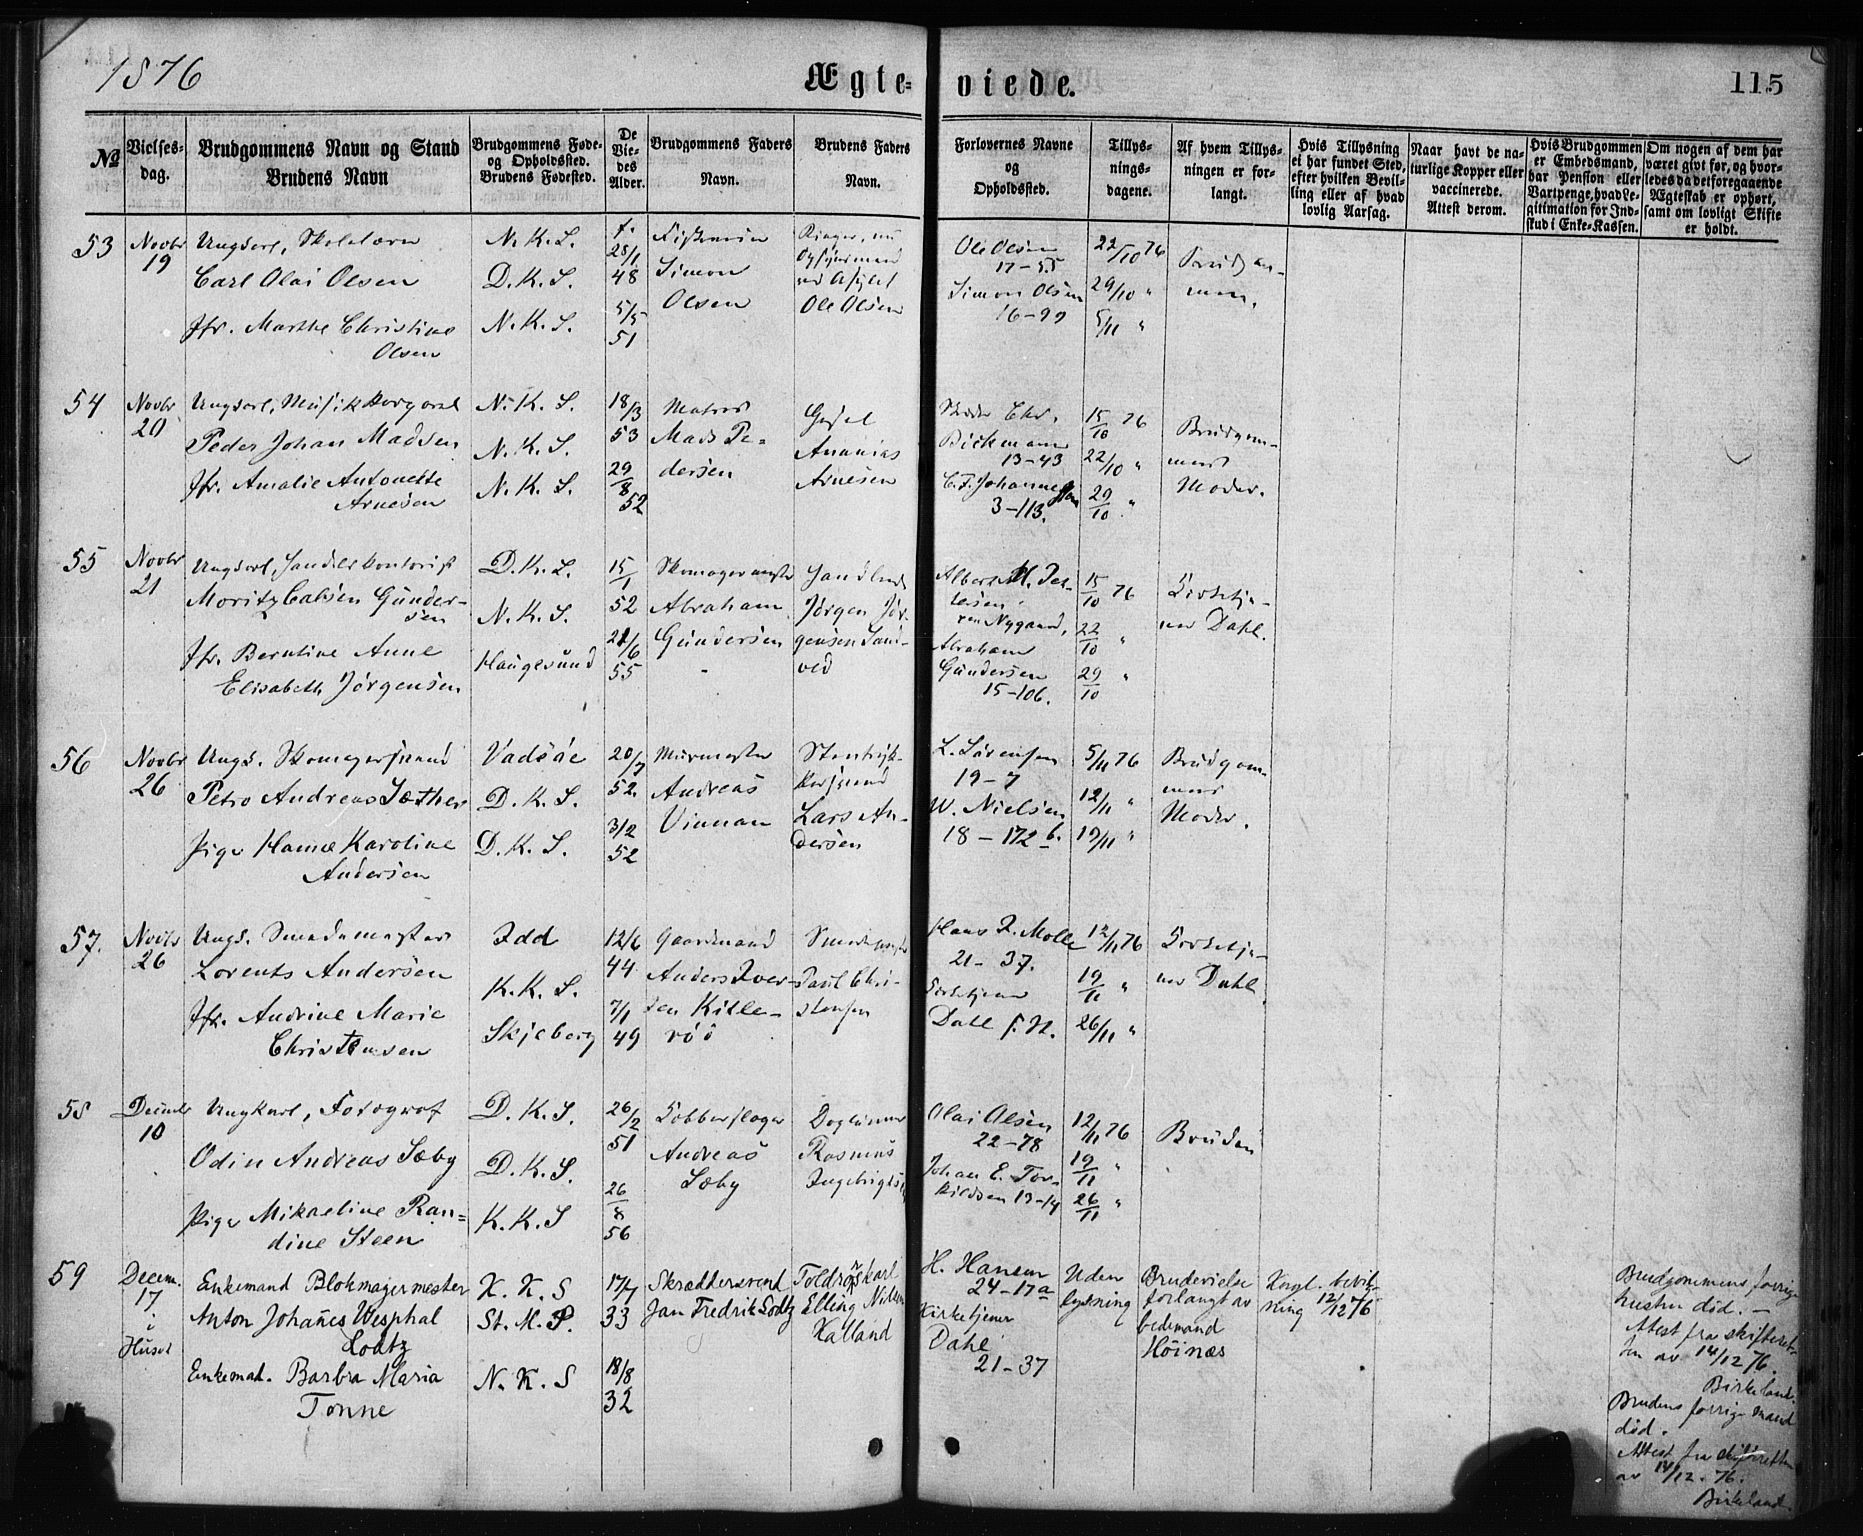 1876
Ægte-
viede.
115
№
Vielses-
dag.
Brudgommens Navn og Stand
Brudens Navn
Brudgommens Føde-
og Opholdssted.
Brudens Fødested.
De
Vie-
des
Alder.
Brudgommens Faders
Navn.
Brudens Faders
Navn.
Forlovernes Navne
og
Opholdssted.
Tillys-
nings-
dagene.
Af hvem Tillys-
ningen er for-
langt.
Hvis Tillysning
ei har fundet Sted,
efter hvilken Bevil-
ling eller af hvad
lovlig Aarsag.
Naar havt de na-
turlige Kopper eller
vaccinerede.
Attest derom.
Hvis Brudgommen
er Embedsmand,
har Pension eller
Vartpenge, hvad Le-
gitimation for Ind-
skud i Enke-Kassen.
Om nogen af dem har
været givt før, og hvor-
ledes da det foregaaende
Ægteskab er ophørt,
samt om lovligt Skifte
er holdt.
53
Novbr
19
Ungkarl, Skolelærer
Carl Olai Olsen
Jfr. Marthe Christine
Olsen
N. K. S.
D. K. S.
N. K. S.
f.
28/1
48
5/5
51
Simon
Olsen
ved Asylet
Ole Olsen
Ole Olsen
17-55
Simon Olsen
16-99
22/10 76
29/10 "
5/11 "
Brudgom-
men.
54
Novbr
20
Peder Johan Madsen
Jfr. Amalie Antonette
Arnesen
N. K. S.
N. K. S.
N. K. S.
18/3
53
29/8
52
Matros
Mads Pe-
dersen
Ananias
Arnesen
Chr.
Bickmann
13-43
C. F. Johannessen
3-113.
15/10 76
22/10 "
29/10 "
Brudgom-
mens
Moder.
55
Novbr
21
Ungkarl, Handelskontorist
Moritz Calsen Gunder-
sen
Jfr. Berntine Anne
Elisabeth Jørgensen
D. K. S.
N. K. S.
Haugesund
15/1
52
21/6
55
Skomagermester
Abraham
Gundersen
Jørgen Jør-
gensen Sand-
ved
Albert M. Pet-
tersen
Nygaard,
Abraham
Gundersen
15-106.
15/10 76
22/10 "
29/10 "
Kirketje-
ner Dahl.
56
Novbr
26
Ungk. Skomagersvend
Petro Andreas Sæther
Pige Hanne Karoline
Andersen
Vadsøe
D. K. S.
D. K. S.
20/7
52.
3/2
52
Murmester
Andreas
Vinnan
Lars An-
dersen
L. Sørensen
19-7
W. Nielsen
18-172 b.
5/11 76
12/11 "
19/11 "
Brudgom-
mens
Moder.
57.
Novbr
26
Ungk. Smedemester
Lorents Andersen
Jfr. Andrine Marie
Christensen
Idd
K. K. S.
Skjeberg
12/6
44
7/1
49
Gaardmand
Anders Iver-
sen Kille-
röd
Smedemester
Paul Chri-
stensen
Hans Z. Molle
21-37.
Kirketjener
Dahl
12/11 76
19/11 "
26/11 "
Kirketje-
ner Dahl.
58
Decembr
10
Ungkarl, Fotograf
Odin Andreas Sæby
Pige Mikaeline Ran-
dine Steen
D. K. S.
D. K. S.
K. K. S
26/2
51
26/8
56
Kobberslager
Andreas
Sæby
Rasmus
Ingebrigtsen
Olai Olsen
22-78
Johan E. Tor-
kildsen 13-14
12/11 76
19/11 "
26/11 "
Bruden
59
Decem.
17
i
Huset
Enkemand Blokmagermester
Anton Johannes Wesphal
Lodtz
Enkemad. Barbra Maria
Tonne
K. K. S
St. M. P.
N. K. S
17/7
33
18/8
32
Skrædersvend
Jan Fredrik Lodtz
Toldrorskarl
Elling Nielsen
Kalland
H. Hansen
24-17a
Kirketjener
Dahl
21-37
Uden
lysning
Brudevielse
forlangt av
bedemand
Höinæs
Kongl. bevil-
ning 12/12 76
Brudgommens forrige
hustru död. -
Attest fra skifteret-
ten av 14/12 76.
Birkeland.
Brudens forrige mand
död.
Attest fra skifteretten
av 14/12. 76.
Birkeland.